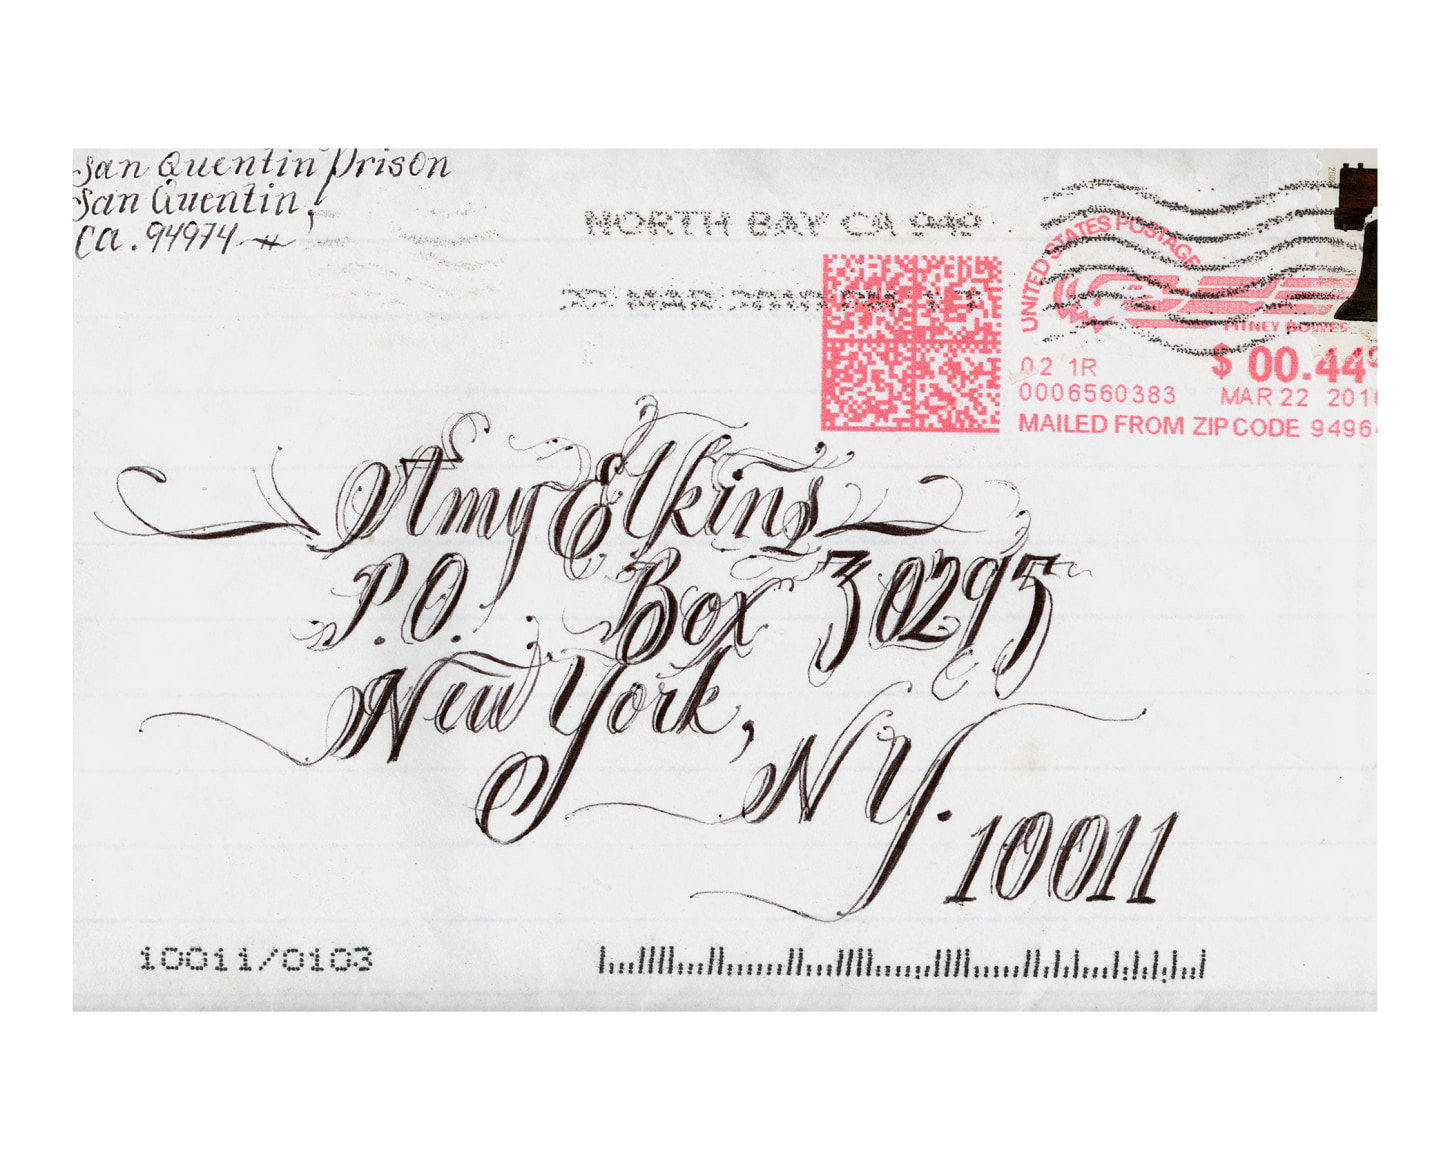 San Quentin Prison
San Quentin,
Ca. 94974
NORTH BAY CA 949
22 MAR 2010 PM
UNITED STATES POSTAGE
PITNEY BOWES
02 1R
$ 00.44
0006560383
MAR 22 201
MAILED FROM ZIP CODE 9496
Amy Elkins
P.O. Box 30295
New York,
NY.
10011
10011/0103